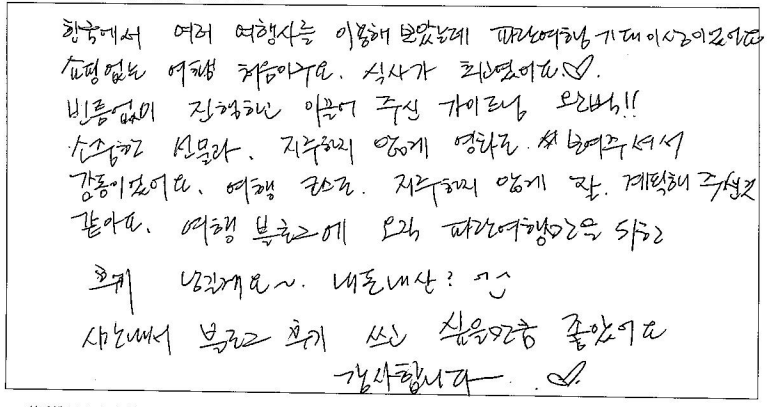 한국에서 여러 여행사를 이용해 보았는데 파란여행 기대이상이었어요
쇼핑없는 여행 처음이구요. 식사가 최고였어요♡.
빈틈없이 진행하고 이끌어 주신 가이드님 오라버!!
소중한 선물과, 지루하지 않게 영화도 보여주셔서
감동이었어요. 여행 코스도. 지루하지 않게 잘. 계획해 주신것
같아요. 여행 블로그에 오직 파란여행만을 위한
후기 남길게요~. 내돈내산? ^^
시간내서 블로그 후기 쓰고 싶을만큼 좋았어요
감사합니다. ♡.